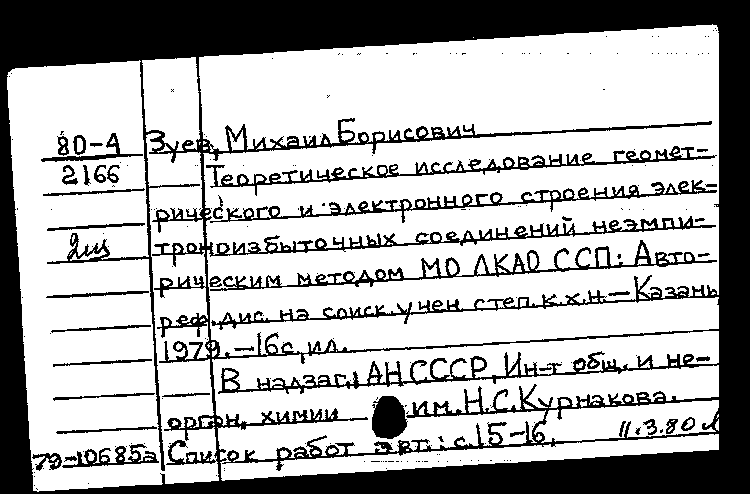 80-4 Зуев, Михаил Борисович
2166 Теоретическое исследование геомет-
рического и электронного строения элек-
2ш троноизбыточных соединений неэмпи-
рическим методом МО ЛКАО ССП: Авто-
реф. дис. на соиск. учен. степ. к.х.н.-Казань
1979.-16с, ил.
В надзаг.: АН СССР, Ин-т общ. и не-
орган, химии им. Н.С. Курнакова.
79-10685а Список работ авт.: с.15-16. 11.3.80